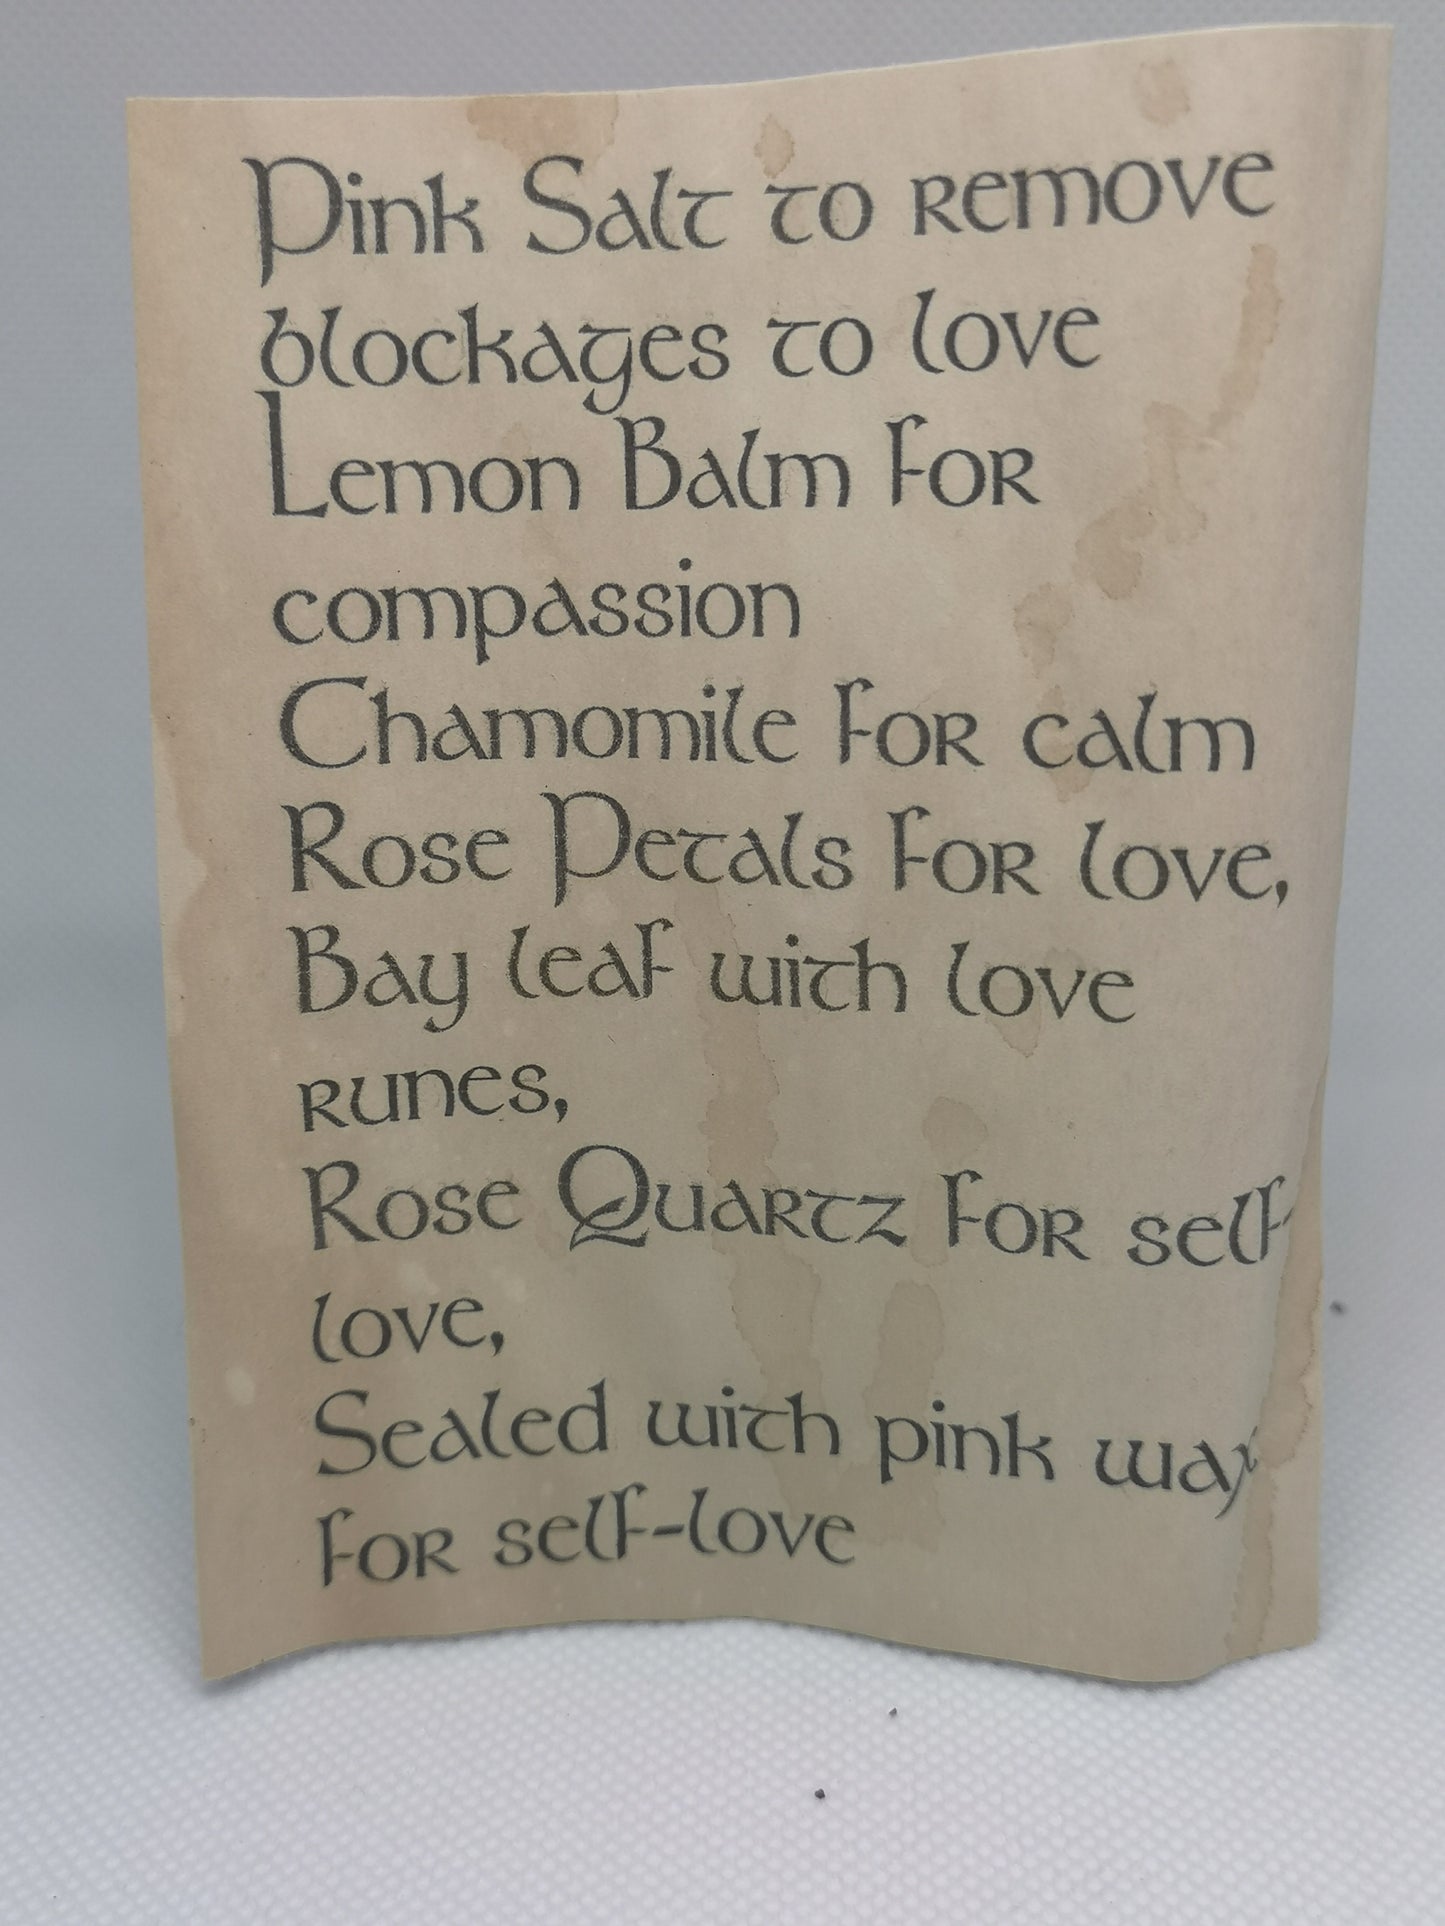 Pink Salt to remove
blockages to love
Lemon Balm for
compassion
Chamomile for calm
Rose Petals for love,
Bay leaf with love
runes,
Rose Quartz for self-
love,
Sealed with pink wax
for self-love